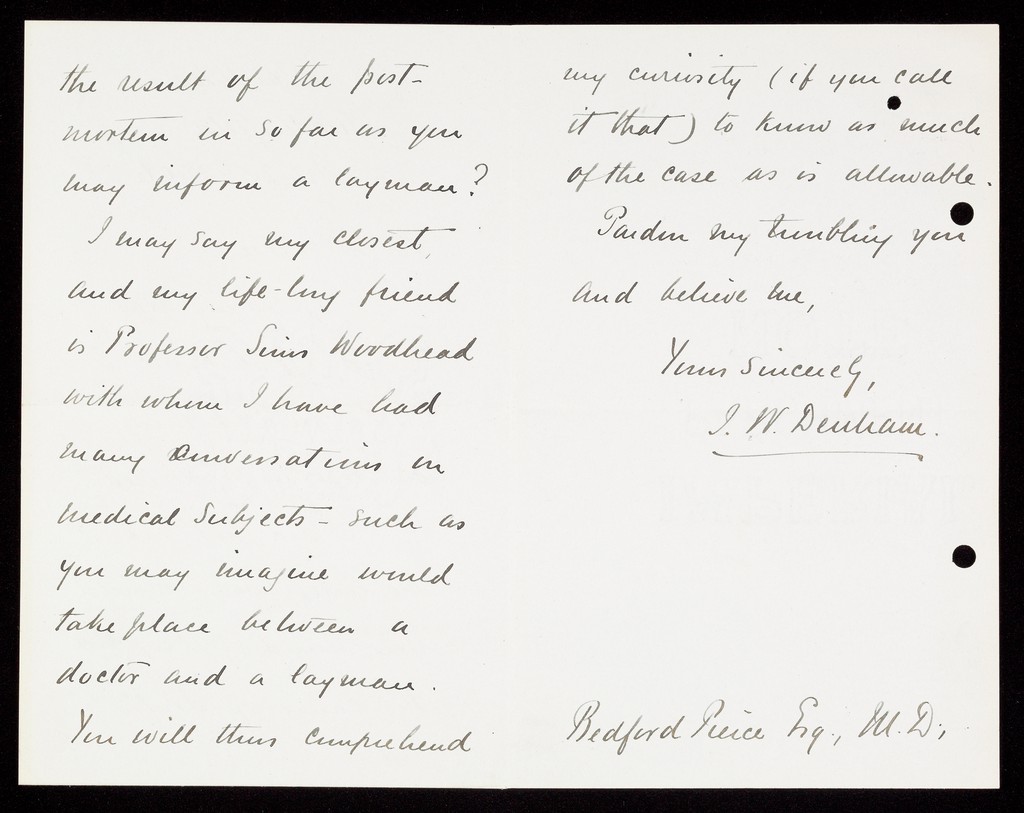 the result of the post-
mortem in so far as you
may inform a layman?
I may say my closest,
and my life-long friend
is Professor Sims Woodhead
with whom I have had
many conversations on
medical subjects - such as
you may imagine would
take place between a
doctor and a layman.
You will thus comprehend
my curiosity (if you call
it that) to know as much
of the case as is allowable.
Pardon my troubling you
and believe me,
Yours sincerely,
J. W. Denham.
Bedford Pierce Esq., M.D.,